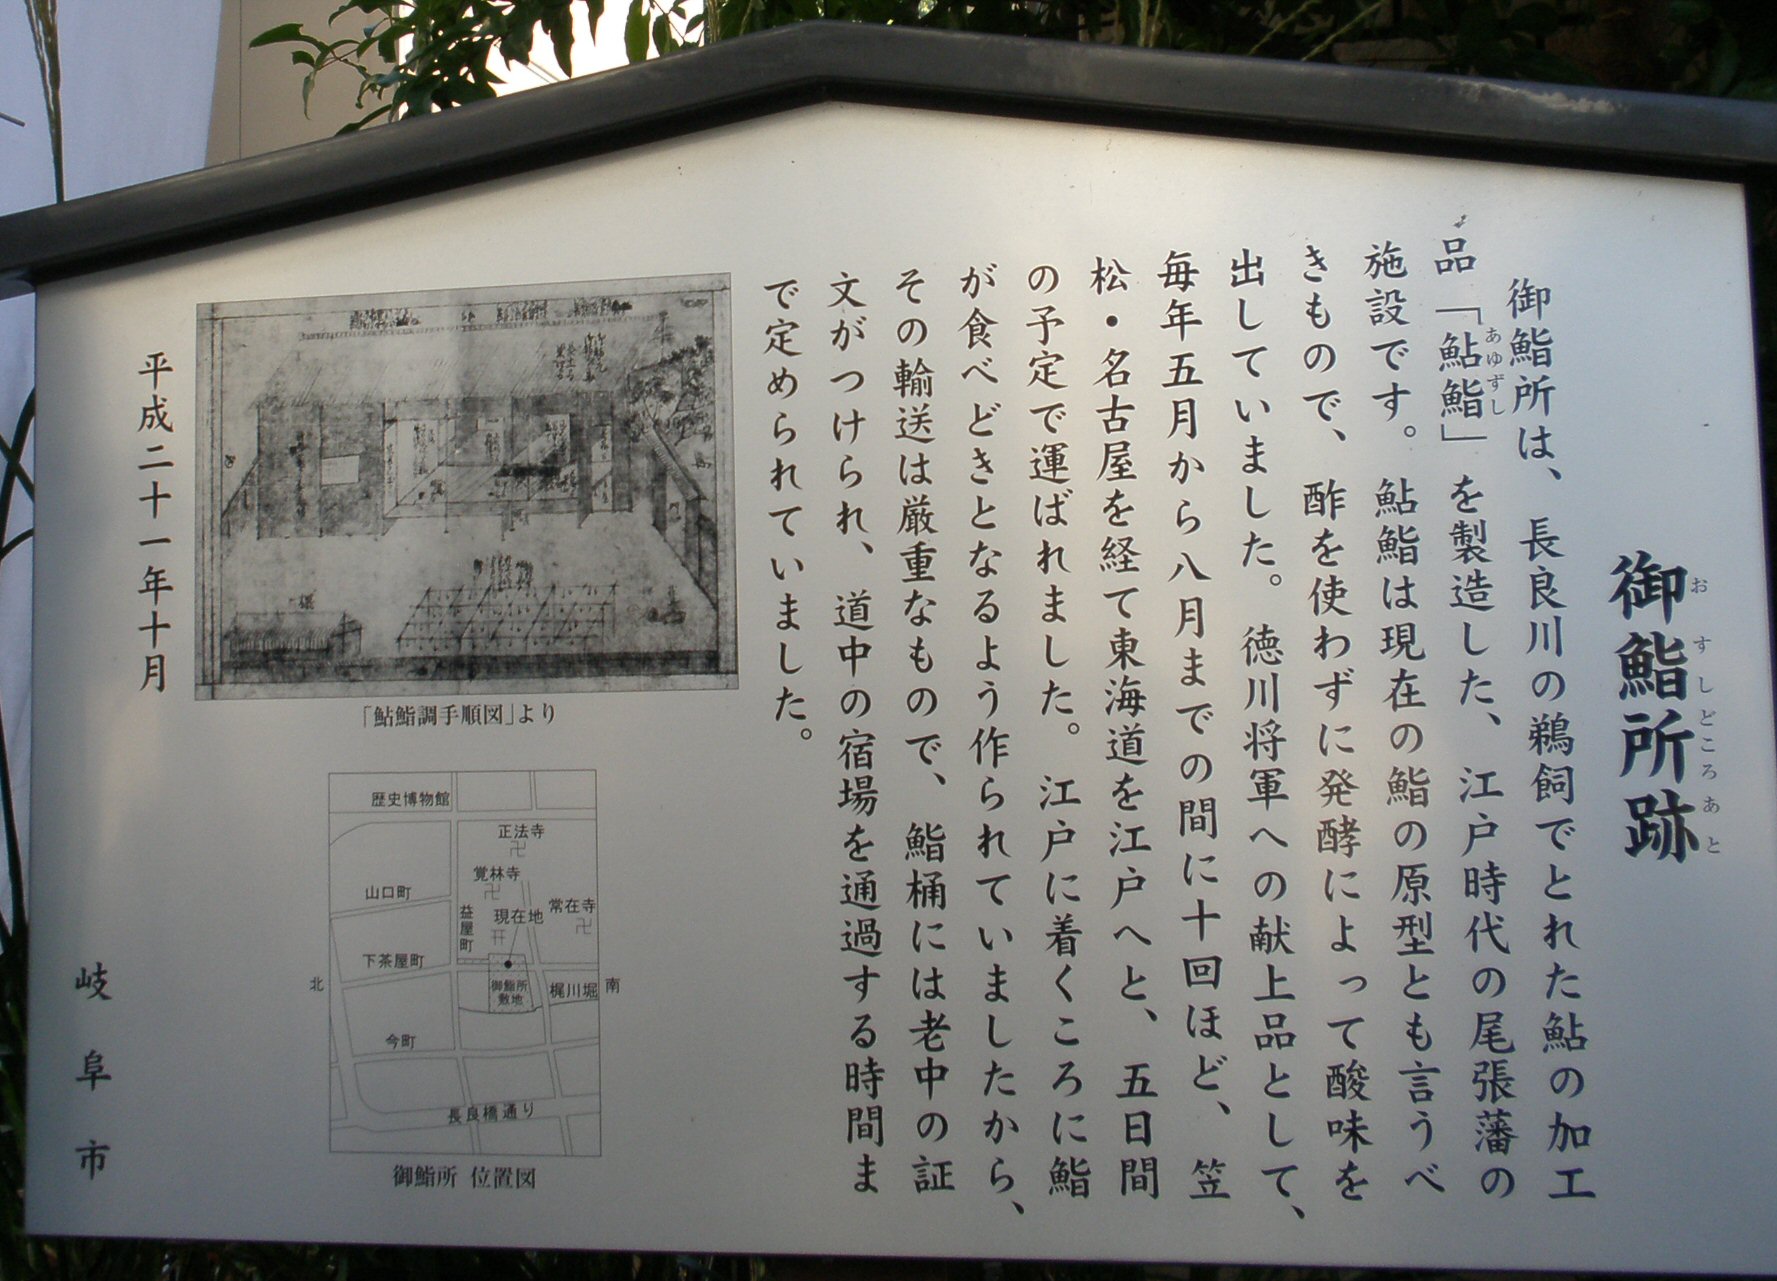 御鮨所跡
おすしどころあと
御鮨所は、長良川の鵜飼でとれた鮎の加工
品「鮎鮨」を製造した、江戸時代の尾張藩の
あゆずし
施設です。鮎鮨は現在の鮨の原型とも言うべ
きもので、酢を使わずに発酵によって酸味を
出していました。徳川将軍への献上品として、
毎年五月から八月までの間に十回ほど、笠
松・名古屋を経て東海道を江戸へと、五日間
の予定で運ばれました。江戸に着くころに鮨
が食べどきとなるよう作られていましたから、
その輸送は厳重なもので、鮨桶には老中の証
文がつけられ、道中の宿場を通過する時間ま
で定められていました。
「鮎鮨調手順図」より
歴史博物館
正法寺
卍
覚林寺
卍
山口町
益屋町
現在地
常在寺
卍
下茶屋町
北
御鮨所
敷地
梶川堀
南
今町
長良橋通り
御鮨所 位置図
平成二十一年十月
岐阜市